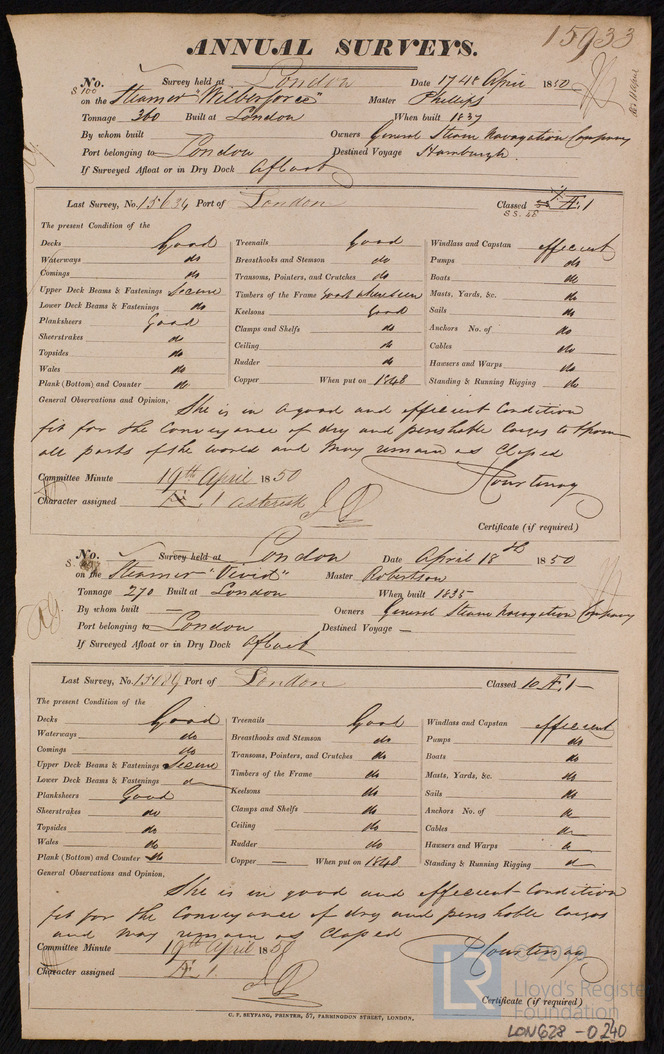 15933
ANNUAL SURVEYS.
No. Survey held at London Date 17 & 18 April 1850
on the Steamer "Wilberforce" Master Phillips
Tonnage 360 Built at London When built 1837
By whom built — Owners General Steam Navagation Company
Port belonging to London Destined Voyage Hamburgh.
If Surveyed Afloat or in Dry Dock Afloat
Last Survey, No. 15634 Port of London Classed Æ.1
SS. 48
The present Condition of the
Decks Good
Waterways do
Comings do
Upper Deck Beams & Fastenings Secure
Lower Deck Beams & Fastenings do
Planksheers Good
Sheerstrakes do
Topsides do
Wales do
Plank (Bottom) and Counter do
Treenails Good
Breasthooks and Stemson do
Transoms, Pointers, and Crutches do
Timbers of the Frame good where seen
Keelsons Good
Clamps and Shelfs do
Ceiling do
Rudder do
Copper When put on 1848
Windlass and Capstan effecient
Pumps do
Boats do
Masts, Yards, &c. do
Sails do
Anchors No. of do
Cables do
Hawsers and Warps do
Standing & Running Rigging do
General Observations and Opinion, She is in a good and effecient Condition
fit for the Conveyance of dry and perishable Cargos to & from
all parts of the world and may remain as Classed
Committee Minute 19th April 1850
Character assigned Æ 1 asterisk
Courtenay
Certificate (if required)
No. Survey held at London Date April 18th 1850
on the Steamer "Vivid" Master Robertson
Tonnage 270 Built at London When built 1835
By whom built — Owners General Steam Navagation Company
Port belonging to London Destined Voyage —
If Surveyed Afloat or in Dry Dock Afloat
Last Survey, No. Port of London Classed 10 Æ.1—
The present Condition of the
Decks Good
Waterways do
Comings do
Upper Deck Beams & Fastenings Secure
Lower Deck Beams & Fastenings d
Planksheers Good
Sheerstrakes do
Topsides do
Wales do
Plank (Bottom) and Counter do
Treenails Good
Breasthooks and Stemson do
Transoms, Pointers, and Crutches do
Timbers of the Frame do
Keelsons do
Clamps and Shelfs do
Ceiling do
Rudder do
Copper — When put on 1848
Windlass and Capstan effecient
Pumps do
Boats do
Masts, Yards, &c. do
Sails do
Anchors No. of d
Cables d
Hawsers and Warps d
Standing & Running Rigging d
General Observations and Opinion,
She is in good and effecient Condition
fit for the Conveyance of dry and perishable Cargos
and may remain as Classed
Committee Minute 19th April 1850
Character assigned Æ 1
Courtenay
Certificate (if required)
G. F. SEYFANG, PRINTER, 57, FARRINGDON STREET, LONDON.
LR © 2019
Lloyd's Register
Foundation
LON628-0240